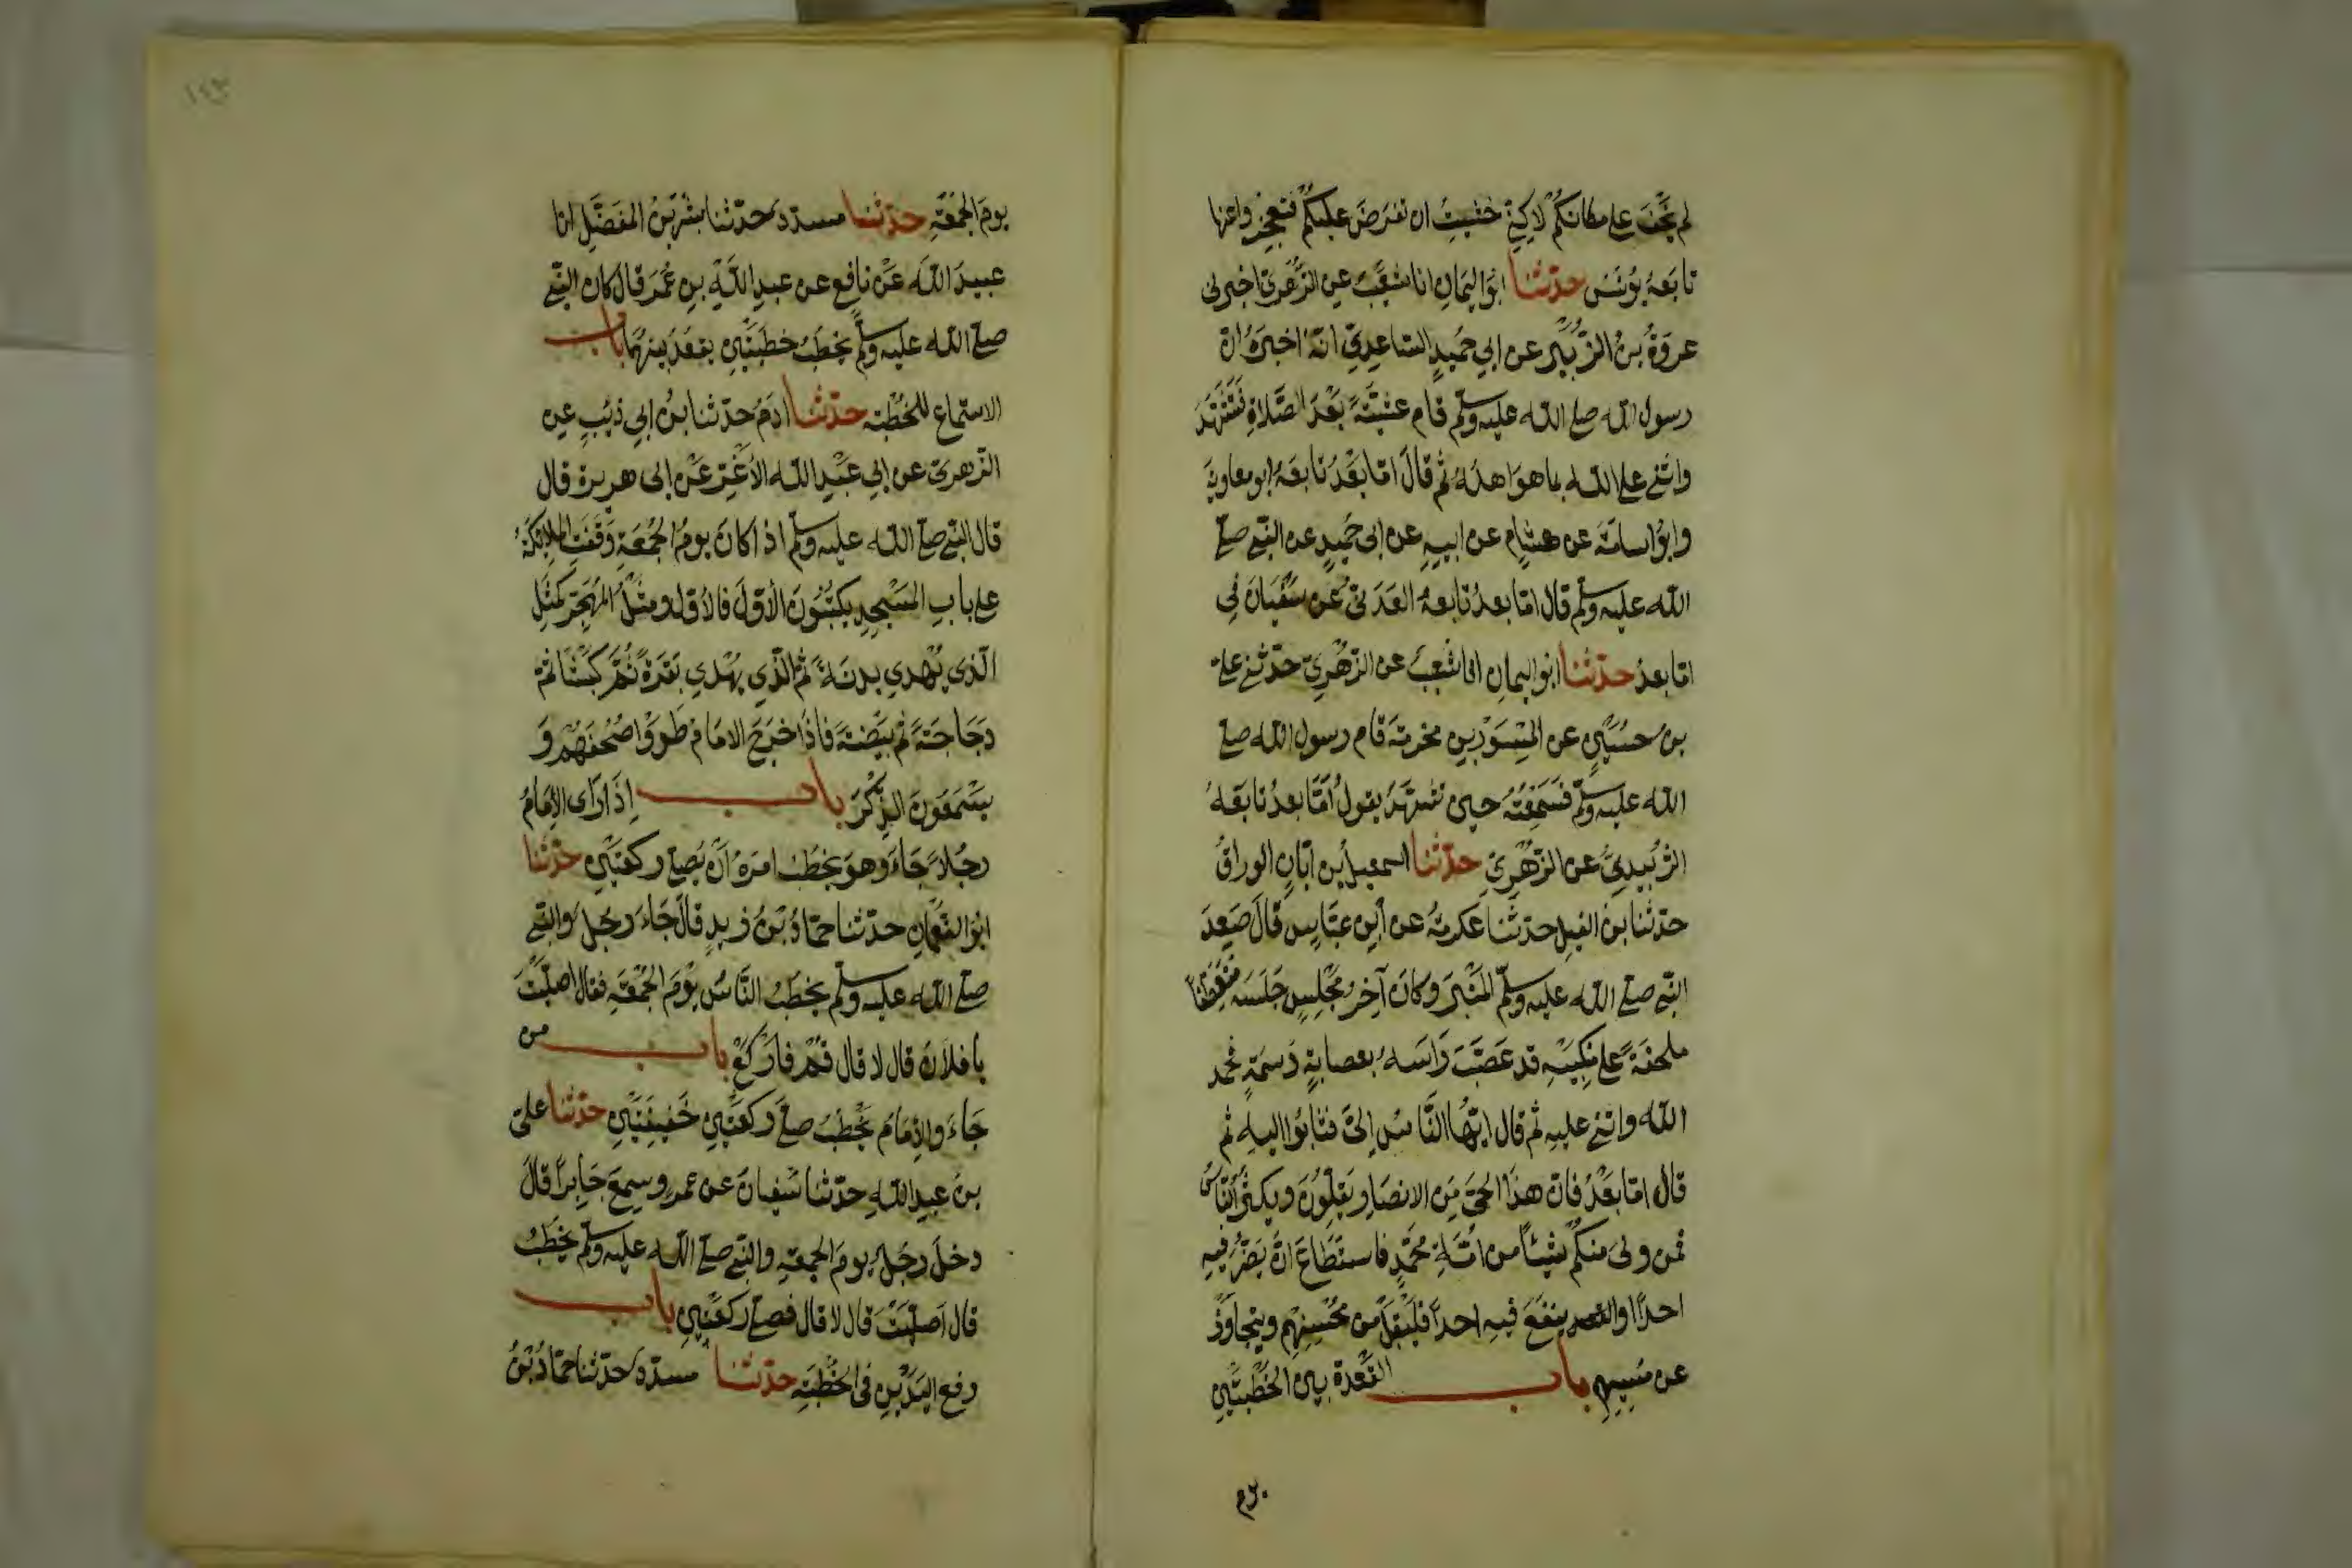 لم يَخْفَ على مكانكم لاكني خشيت ان تفرض عليكم فتعجزوا عنها
تابعه يونس حدثنا ابو اليمان انا شعيب عن الزهري اخبرنى
عروة بن الزبير عن ابي حميد الساعدي انه اخبره ان
رسول الله صلى الله عليه وسلم قام عشية بعد الصلاة فتشهد
واثنى على الله بما هو اهله ثم قال اما بعد تابعه ابو معاوية
وابو اسامة عن هشام عن ابيه عن ابى حميد عن النبي صلى
الله عليه وسلم قال اما بعد تابعه العدنى عن سفيان في
اما بعد حدثنا ابو اليمان انا شعيب عن الزهري حدثنى على
بن حسين عن المسور بن مخرمة قام رسول الله صلى
الله عليه وسلم فسمعته حين تشهد يقول اما بعد تابعه
الزبيدي عن الزهري حدثنا اسمعيل بن ابان الوراق
حدثنا بن الغسيل حدثنا عكرمة عن ابن عباس قال صعد
النبي صلى الله عليه وسلم المنبر وكان آخر مجلس جلسه متعطفا
ملحفة على منكبيه قد عصب راسه بعصابة دسمة فحمد
الله واثنى عليه ثم قال ايها الناس الي فثابوا اليه ثم
قال اما بعد فان هذا الحي من الانصار يقلون ويكثر الناس
فمن ولي منكم شيئا من امة محمد فاستطاع ان يضر فيه
احدا او ينفع فيه احدا فليقبل من محسنهم ويتجاوز
عن مسيهم باب القعدة بين الخطبتين
يوم
١٤٣
يوم الجمعة حدثنا مسدد حدثنا بشر بن المفضل انا
عبيد الله عن نافع عن عبد الله بن عمر قال كان النبي
صلى الله عليه وسلم يخطب خطبتين يقعد بينهما باب
الاستماع للخطبة حدثنا ادم حدثنا بن ابي ذئب عن
الزهري عن ابي عبد الله الاغر عن ابى هريرة قال
قال النبي صلى الله عليه وسلم اذا كان يوم الجمعة وقفت الملائكة
على باب المسجد يكتبون الاول فالاول ومثل المهجر كمثل
الذى يهدي بدنة ثم الذي يهدي بقرة ثم كبشا ثم
دجاجة ثم بيضة فاذا خرج الامام طووا صحفهم و
يستمعون الذكر باب اذا راى الامام
رجلا جاء وهو يخطب امره ان يصلي ركعتين حدثنا
ابو النعمان حدثنا حماد بن زيد قال جاء رجل والنبي
صلى الله عليه وسلم يخطب الناس يوم الجمعة فقال اصليت
يا فلان قال لا قال قم فاركع باب من
جاء والامام يخطب صلى ركعتين خفيفتين حدثنا علي
بن عبد الله حدثنا سفيان عن عمرو سمع جابرا قال
دخل رجل يوم الجمعة والنبي صلى الله عليه وسلم يخطب
قال اصليت قال لا قال فصلي ركعتين باب
رفع اليدين في الخطبة حدثنا مسدد حدثنا حماد بن